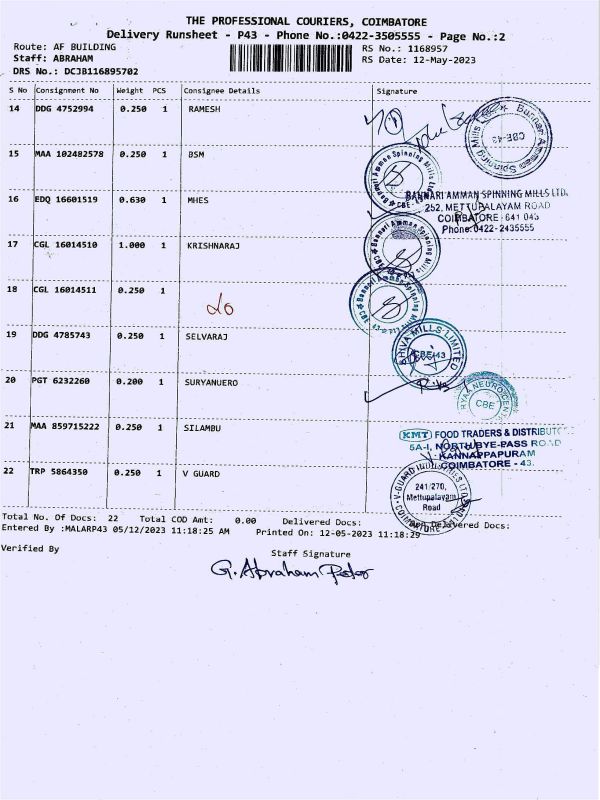 THE PROFESSIONAL COURIERS, COIMBATORE
Delivery Runsheet - P43 - Phone No.:0422-3505555 - Page No.:2
Route: AF BUILDING
Staff: ABRAHAM
DRS No.: DCJB116895702
RS No.: 1168957
RS Date: 12-May-2023
S No Consignment No Weight PCS Consignee Details Signature
14 DDG 4752994 0.250 1 RAMESH
15 MAA 102482578 0.250 1 BSM
16 EDQ 16601519 0.630 1 MHES
17 CGL 16014510 1.000 1 KRISHNARAJ
18 CGL 16014511 0.250 1
19 DDG 4785743 0.250 1 SELVARAJ
20 PGT 6232260 0.200 1 SURYANUERO
21 MAA 859715222 0.250 1 SILAMBU
22 TRP 5864350 0.250 1 V GUARD
Bannari Amman Spinning Mills
CBE-43
Bannari Amman Spinning Mills Ltd
CBE
BANNARI AMMAN SPINNING MILLS LTD.
252, METTUPALAYAM ROAD
COIMBATORE - 641 043
Phone:0422-2435555
Bannari Amman Spinning Mills
Bannari Amman Spinning Mills
CBE 43
SHIVA MILLS LIMITED
CBE-43
NEURO CENTRE
CBE
KMT FOOD TRADERS & DISTRIBUTORS
5A-I, NORTH BYE-PASS ROAD
KANNAPPAPURAM
COIMBATORE - 43.
V-GUARD INDUSTRIES LTD
241/270,
Mettupalayam
Road
COIMBATORE
Total No. Of Docs: 22 Total COD Amt: 0.00 Delivered Docs: Un Delivered Docs:
Entered By :MALARP43 05/12/2023 11:18:25 AM Printed On: 12-05-2023 11:18:29
Verified By
Staff Signature
G. Abraham Peter